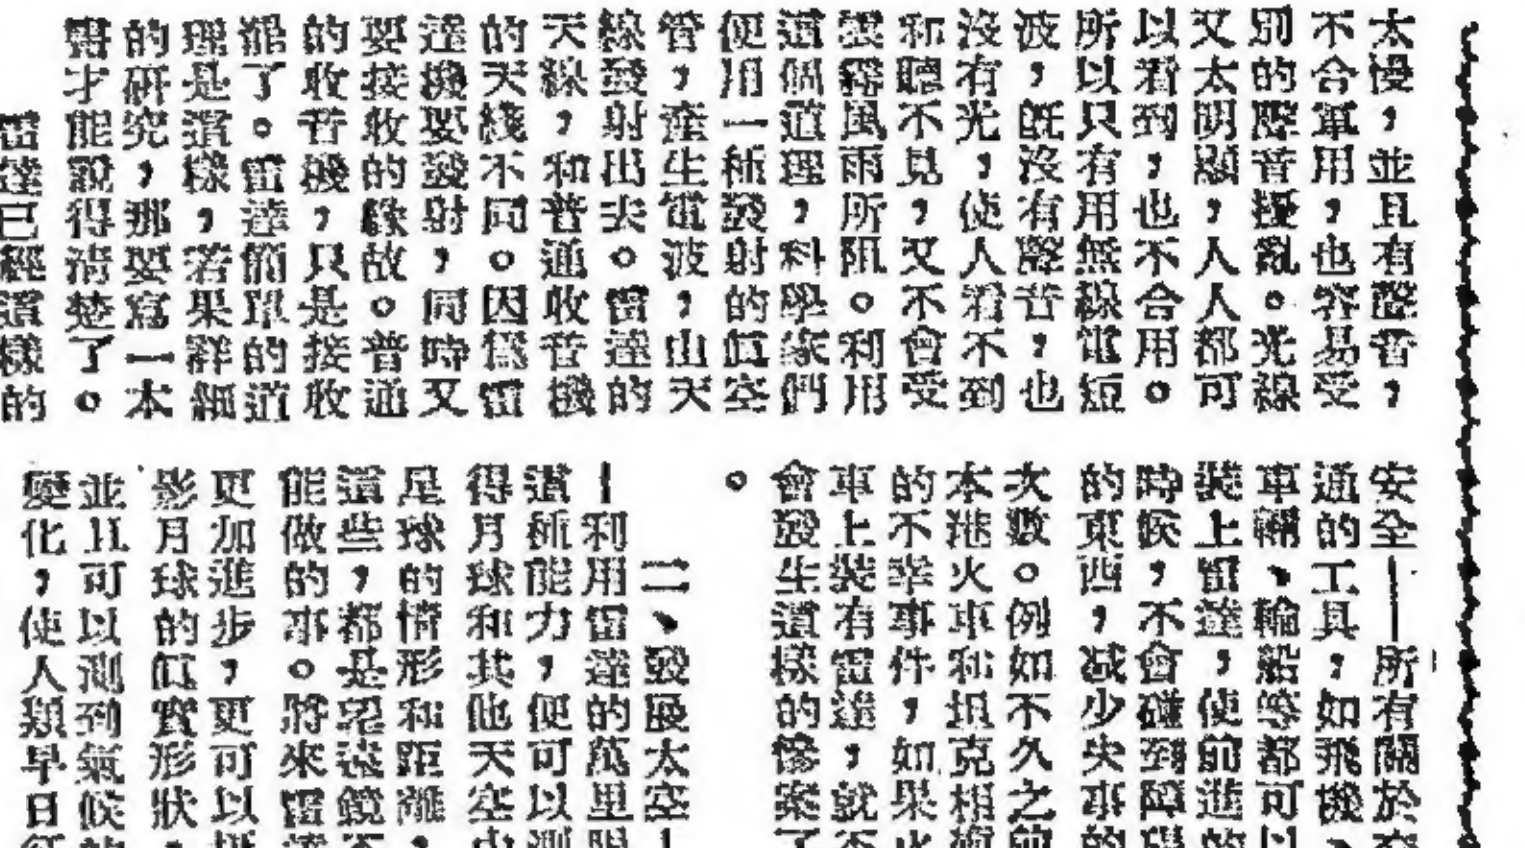 太慢，並且有聲音，
不合軍用，也容易受
別的聲音擾亂。光線
又太明顯，人人都可
以看到，也不合用。
所以只有用無線電短
波，旣沒有聲音，也
沒有光，使人看不到
和聽不見，又不會受
雲霧風雨所阻。利用
這個道理，科學家們
便用一種發射的眞空
管，產生電波，由天
線發射出去。雷達的
天線，和普通收音機
的天綫不同。因爲雷
達機要發射，同時又
要接收的緣故。普通
的收音機，只是接收
罷了。雷達簡單的道
理是這樣，若果詳細
的研究，那要寫一本
書才能說得清楚了。
雷達已經這樣的
安全——所有關於
通的工具，如飛機、
車輛、輪船等都可以
裝上雷達，使前進的
時候，不會碰到障碍
的東西，减少失事的
次數。例如不久之前
本港火車和坦克相撞
的不幸事件，如果火
車上裝有雷達，就不
會發生這樣的慘案了
。
二、發展太空—
—利用雷達的萬里眼
這種能力，便可以測
得月球和其他天空中
星球的情形和距離，
這些，都是望遠鏡不
能做的事。將來雷達
更加進步，更可以
影月球的眞實形狀，
並且可以測到氣候的
變化，使人類早日